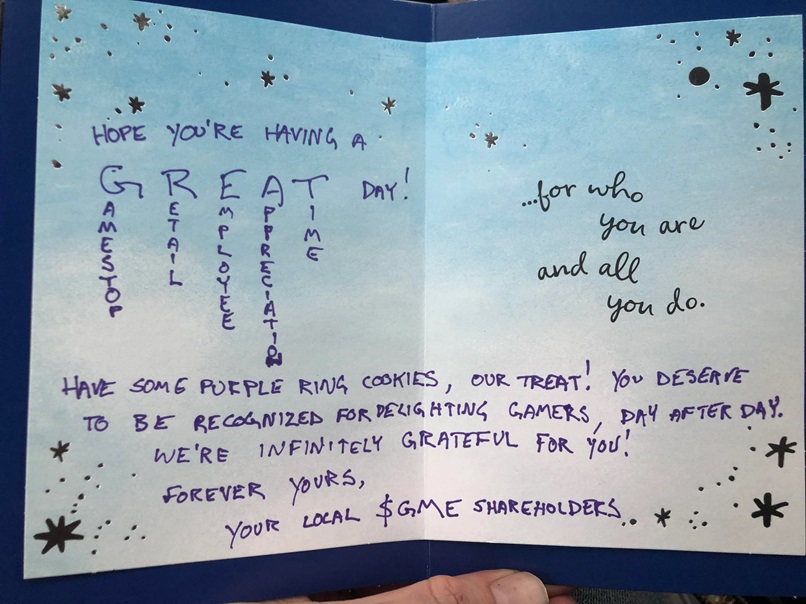 HOPE YOU'RE HAVING A
GREAT DAY!
GAMESTOP
RETAIL
EMPLOYEE
APPRECIATION
TIME
...for who
you are
and all
you do.
HAVE SOME PURPLE RING COOKIES, OUR TREAT! YOU DESERVE
TO BE RECOGNIZED FOR DELIGHTING GAMERS, DAY AFTER DAY.
WE'RE INFINITELY GRATEFUL FOR YOU!
FOREVER YOURS,
YOUR LOCAL $GME SHAREHOLDERS